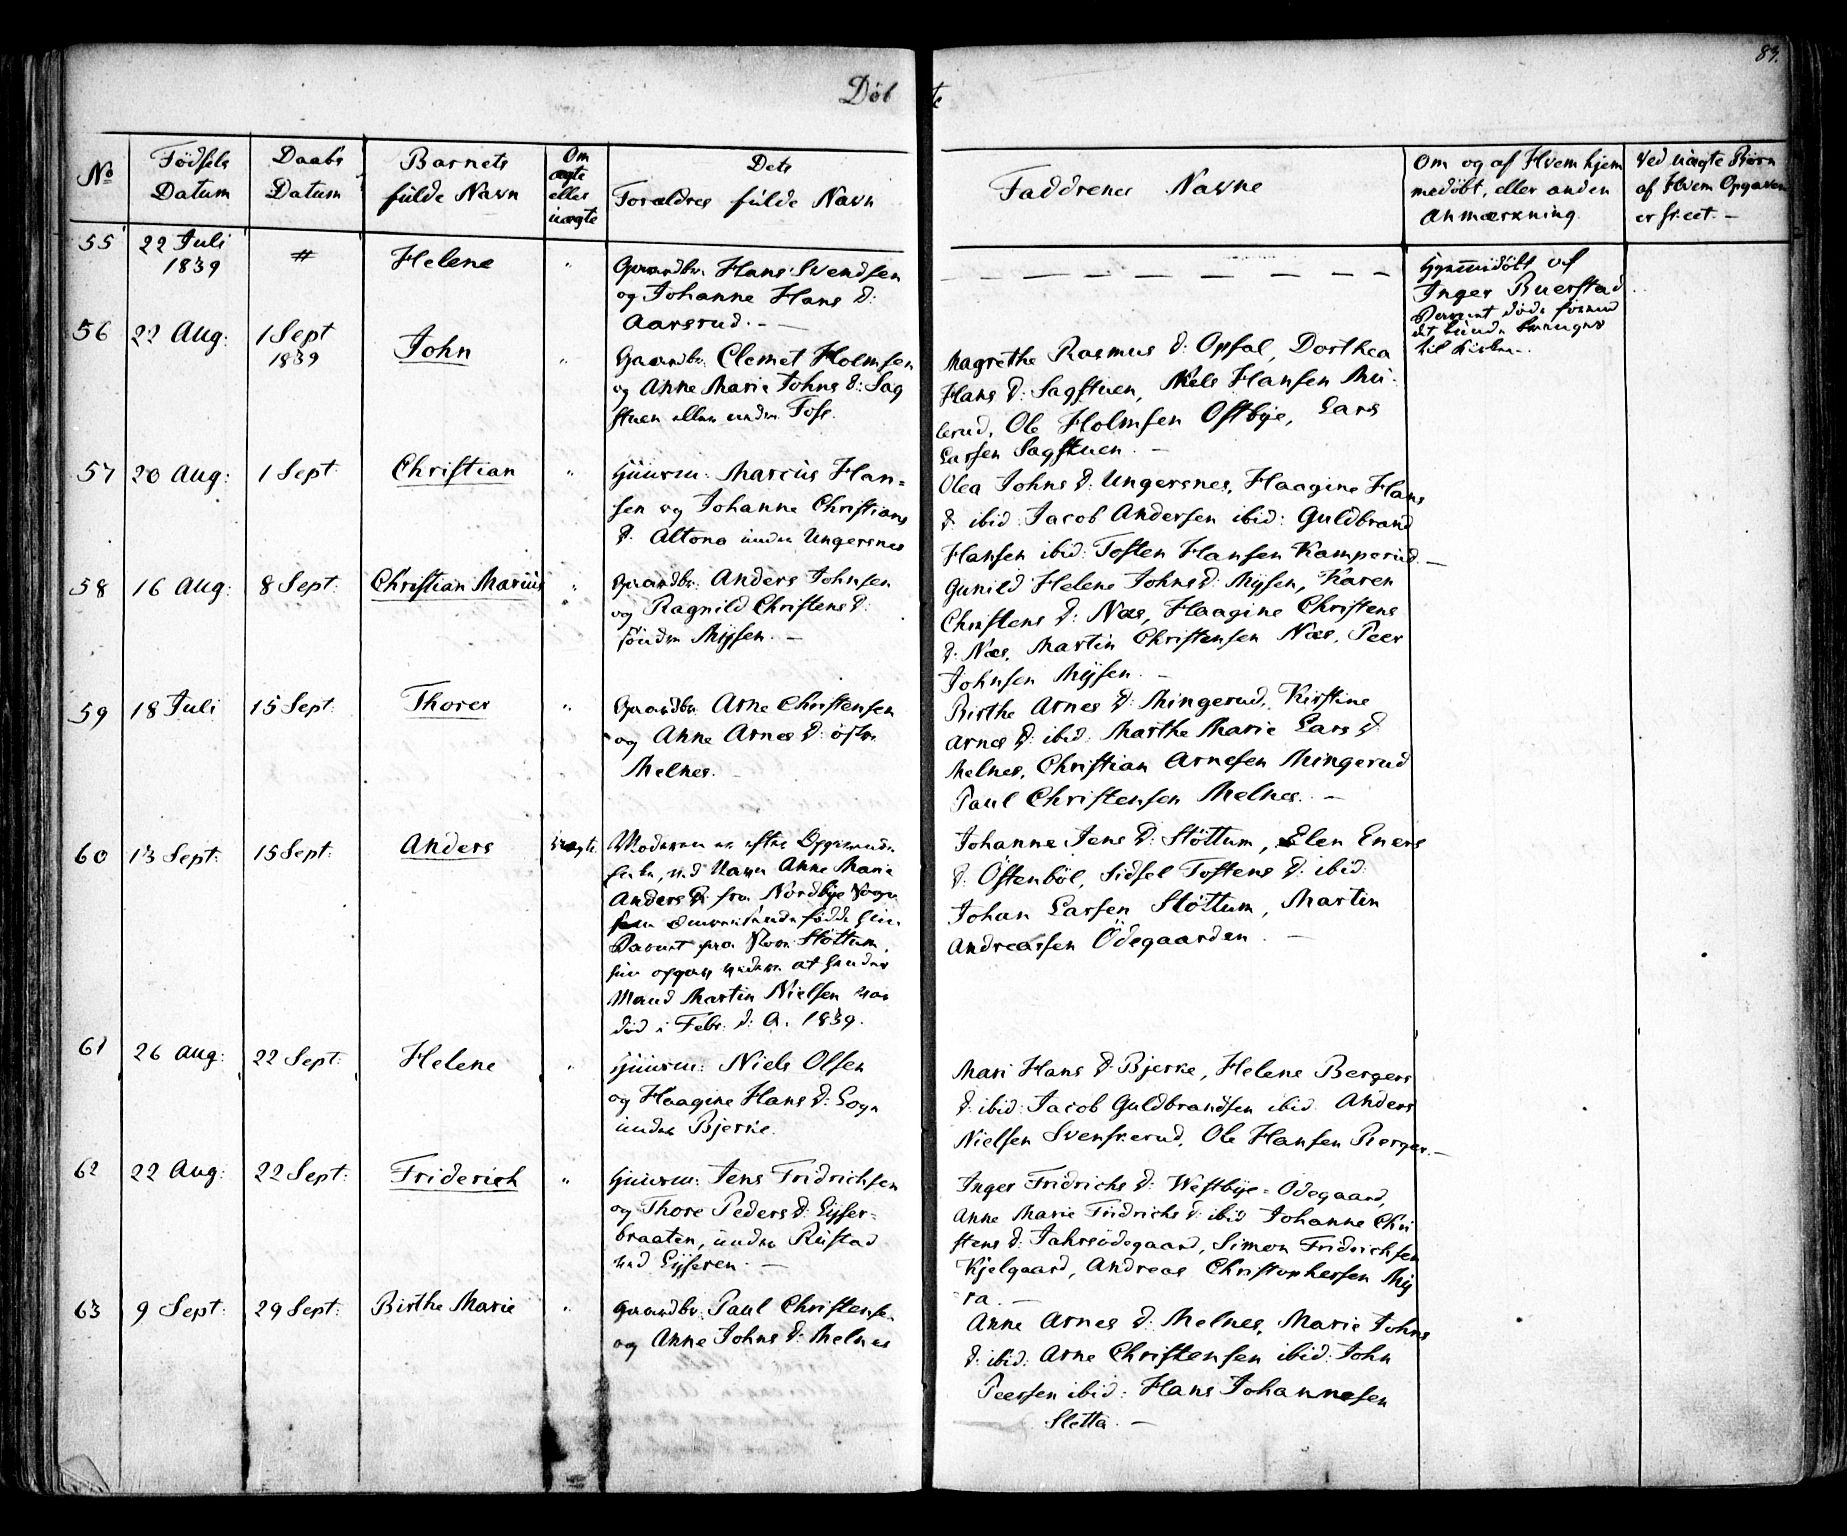 83.
Døbte
No
Fødsels Datum
Daabs Datum
Barnets fulde Navn
Om ægte eller uægte
Dets Forældres fulde Navn
Faddrenes Navne
Om og af Hvem hjem medøbt, eller anden Anmærkning.
Ved uægte Børn af Hvem Opgaven er skeet. —
55
22 Juli
1839
#
Helene
"
Gaardbr. Hans Svendsen
og Johanne Hans D:
Aarsrud. —
— — — — — — — —
Hjemmedøbt af
Inger Buerstad
Barnet døde førend
det kunde bringes
til Kirken.
56
22 Aug:
1 Sept
1839
John
"
Gaardbr. Clemet Holmsen
og Anne Marie Johns D: Sag
stuen eller under Foss.
Magrethe Rasmus D: Opsal, Dorthea
Hans D: Sagstuen, Niels Hansen Mu-
lerud, Ole Holmsen Ostbye, Lars
Larsen Sagstuen. —
57
20 Aug:
1 Sept:
Christian
"
Huusm: Marcus Han=
sen og Johanne Christians
D: Altona under Ungersnes
Olea Johns D: Ungersnes, Haagine Hans
D: ibid: Jacob Andersen ibid: Guldbrand
Hansen ibid: Tosten Hansen Kamperud. —
58
16 Aug:
8 Sept:
Christian Marius
"
Gaardbr: Anders Johnsen
og Ragnild Christens D:
søndre Mysen. —
Gunild Helene Johns D: Mysen, Karen
Christens D: Næs, Haagine Christens
D: Næs, Martin Christensen Næs, Peer
Johnsen Mysen. —
59
18 Juli
15 Sept:
Thorer
"
Gaardbr. Arne Christensen
og Anne Arnes D: østre
Melnes.
Birthe Arnes D: Mingerud, Kirstine
Arnes D: ibid: Marthe Marie Lars D
Melnes, Christian Arnesen Mingerud
Paul Christensen Melnes. —
60
13 Sept:
15 Sept:
Anders
uægte
Moderen er efter Opgivende
Enke, ved Navn Anne Marie
Anders D: fra Nordbye Sogn
som omvankende fødte sin
Barnet paa Stöttum,
hun opgav videre at hendes
Mand Martin Nielsen var
død i Febr. d: A. 1839.
Johanne Jens D: Stöttum, Elen Eners
D: Östenböl, Sidsel Tostens D: ibid:
Johan Larsen Stöttum, Martin
Andreassen Ödegaarden. —
61
26 Aug:
22 Sept:
Helene
"
Huusm: Niels Olsen
og Haagine Hans D: Sogn
under Bjerke.
Mari Hans D: Bjerke, Helene Bergers
D: ibid: Jacob Guldbrandsen ibid: Anders
Nielsen Svenskerud, Ole Hansen Berger. —
62
22 Aug:
22 Sept:
Friderich
"
Huusm: Jens Fridrichsen
og Thore Peders D: Lysser=
braaten, under Rustad
ved Lysseren. —
Inger Fridrichs D: Westbye=Odegaard,
Anne Marie Fridrichs D: ibid Johanne Chri
stens D: Jahrsödegaard, Simon Fridrichsen
Kjelgaard, Andreas Christophersen My
ra. —
63
9 Sept:
29 Sept:
Birthe Marie
"
Gaardbr. Paul Christense
og Anne Johns D: Melnes
Anne Arnes D: Melnes, Marie Johns
D: ibid: Arne Christensen ibid: John
Peersen ibid: Hans Johannesen
Sletta. —